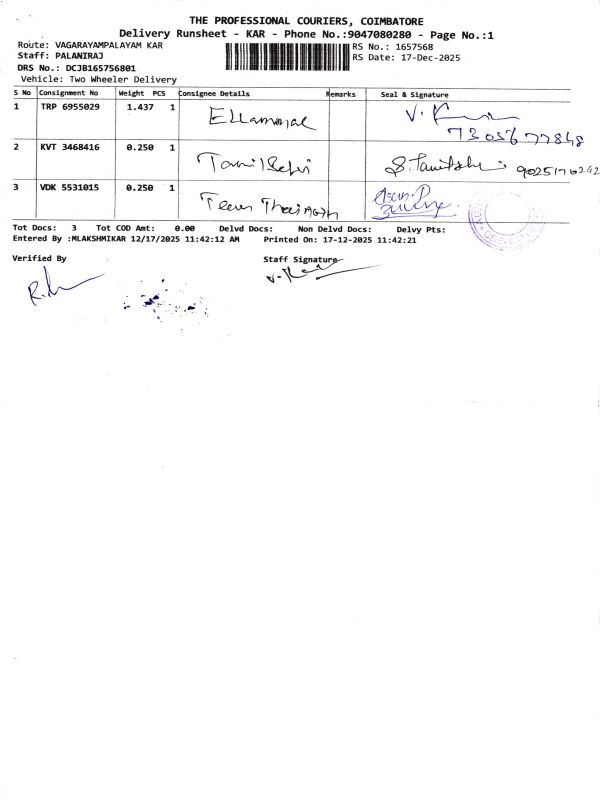 THE PROFESSIONAL COURIERS, COIMBATORE
Delivery Runsheet - KAR - Phone No.:9047080280 - Page No.:1
Route: VAGARAYAMPALAYAM KAR
RS No.: 1657568
Staff: PALANIRAJ
RS Date: 17-Dec-2025
DRS No.: DCJB165756801
Vehicle: Two Wheeler Delivery
S No Consignment No Weight PCS Consignee Details Remarks Seal & Signature
1 TRP 6955029 1.437 1 Ellammal V.
7305677848
2 KVT 3468416 0.250 1 Tamil Selvi 9025176242
3 VDK 5531015 0.250 1 Team
Tot Docs: 3 Tot COD Amt: 0.00 Delvd Docs: Non Delvd Docs: Delvy Pts:
Entered By :MLAKSHMIKAR 12/17/2025 11:42:12 AM Printed On: 17-12-2025 11:42:21
Verified By Staff Signature